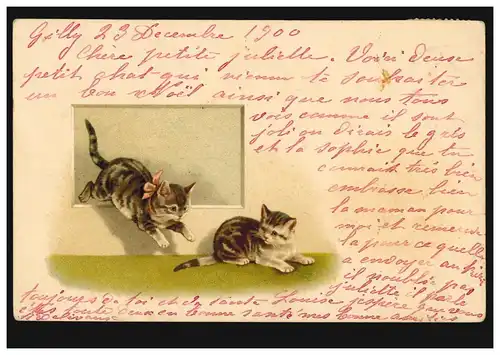 Gilly 23 Decembre 1900
Chère petite julielle. Voici deuse
petit chat qui vienne te souhaiter
un bon Noël ainsi que nous tous
vois comme il sont
joli on dirais le gris
et la sophie que tu
connait très bien
embrasse bien
la maman pour
moi et remercie
la pour ce quelle
a envoyer au
il n'oublie pas
juliette il parle
toujours de toi et de sante Louise j'espère que vous
êtes toute deux en bonne santé mes bonne amitiés